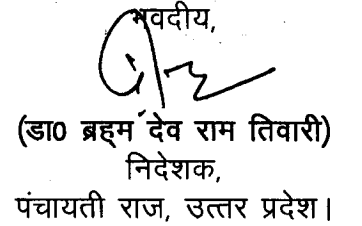 भवदीय,
(डा0 ब्रह्म देव राम तिवारी)
निदेशक,
पंचायती राज, उत्तर प्रदेश।